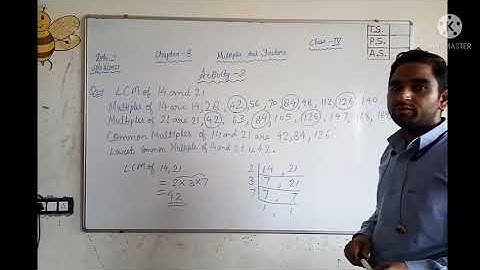 Chapter-8 Multiples and Factors Class-IV
Activity-3
LCM of 14 and 21
Multiple of 14 are 14, 28, 42, 56, 70, 84, 98, 112, 126, 140
Multiples of 21 are 21, 42, 63, 84, 105, 126, 147, 168, 189
Common Multiples of 14 and 21 are 42, 84, 126
Lowest Common Multiple of 14 and 21 is 42.
LCM of 14, 21
= 2×3×7
= 42
2 14, 21
3 7, 21
7 7, 7
1, 1
T.S.
P.S.
A.S.
MASTER